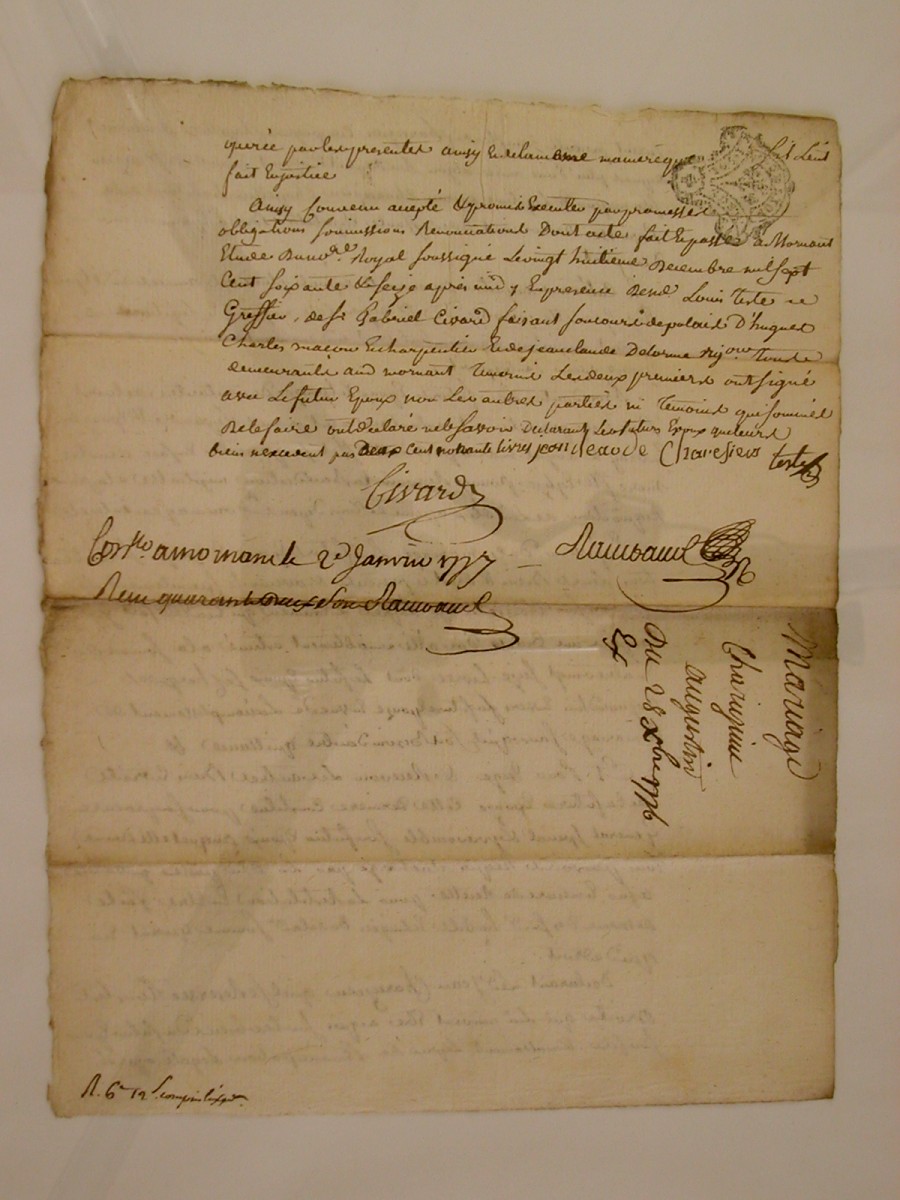 quérée par les presentes ainsy et de la même maniere que s'ils leus
fait en justice
Ainsy convenu accepté & promis executer par promesses
obligations soumissions Renonciations Dont acte fait et passé à Mornant
Etude Du no.re Royal soussigné le vingt huitieme Decembre mil sept
Cent soixante & seize après midy En presence de sr Louis teste
Greffier, de sr Gabriel Civard faisant son cours de palais D'hugues
Charles macon Et charpentier Et de jean claude Delorme tous
demeurants aud mornant Temoins Les deux premiers ont signé
avec Le futur Epoux non Les autres parties ni Temoins qui sommés
De le faire ont declaré ne le savoir Declarants Les futurs Epoux que leurs
biens n'excedent pas Deux Cent nonante livres jean Charesieu teste
Civard
Con.lé a mornant le 2e Janvier 1777
Reçu quarante deux sou
Mariage
Charesieu
augustin
Du 28 Xbre 1776
Ex
R. 6# 12s compris l'exp.